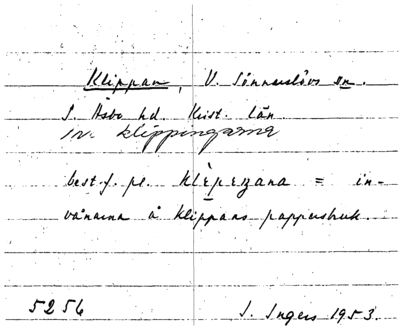 Klippan, V. Sönnarslövs sn.
S. Åsbo hd. Krist. län
inv. klippingarna
best. f. pl. klepeŋana = in-
vånarna å Klippans pappersbruk.
5256 I. Ingers 1953.